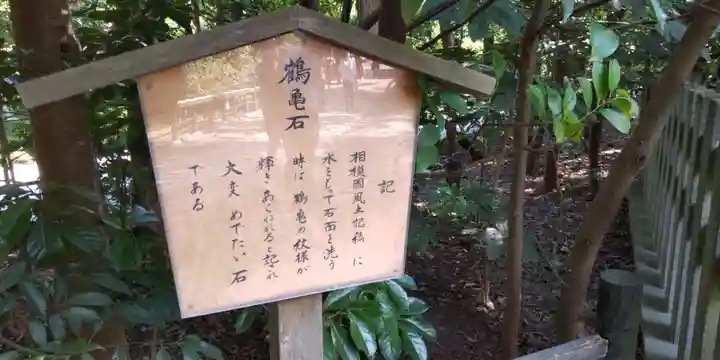 鶴亀石
記
相模國風土記稿に
水をもって石面を洗う
時は鶴亀の紋様が
輝きあらわれると記され
大変めでたい石
である